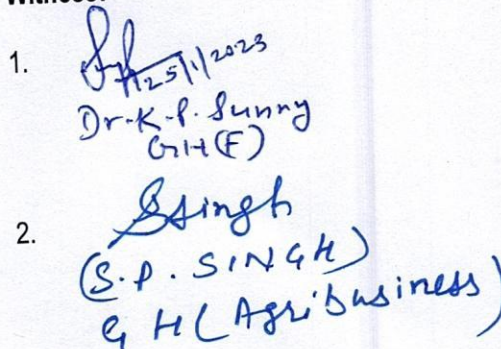 1.
25/1/2023
Dr. K. P. Sunny
GH(F)
2.
SSingh
(S.P. SINGH)
GH (Agribusiness)